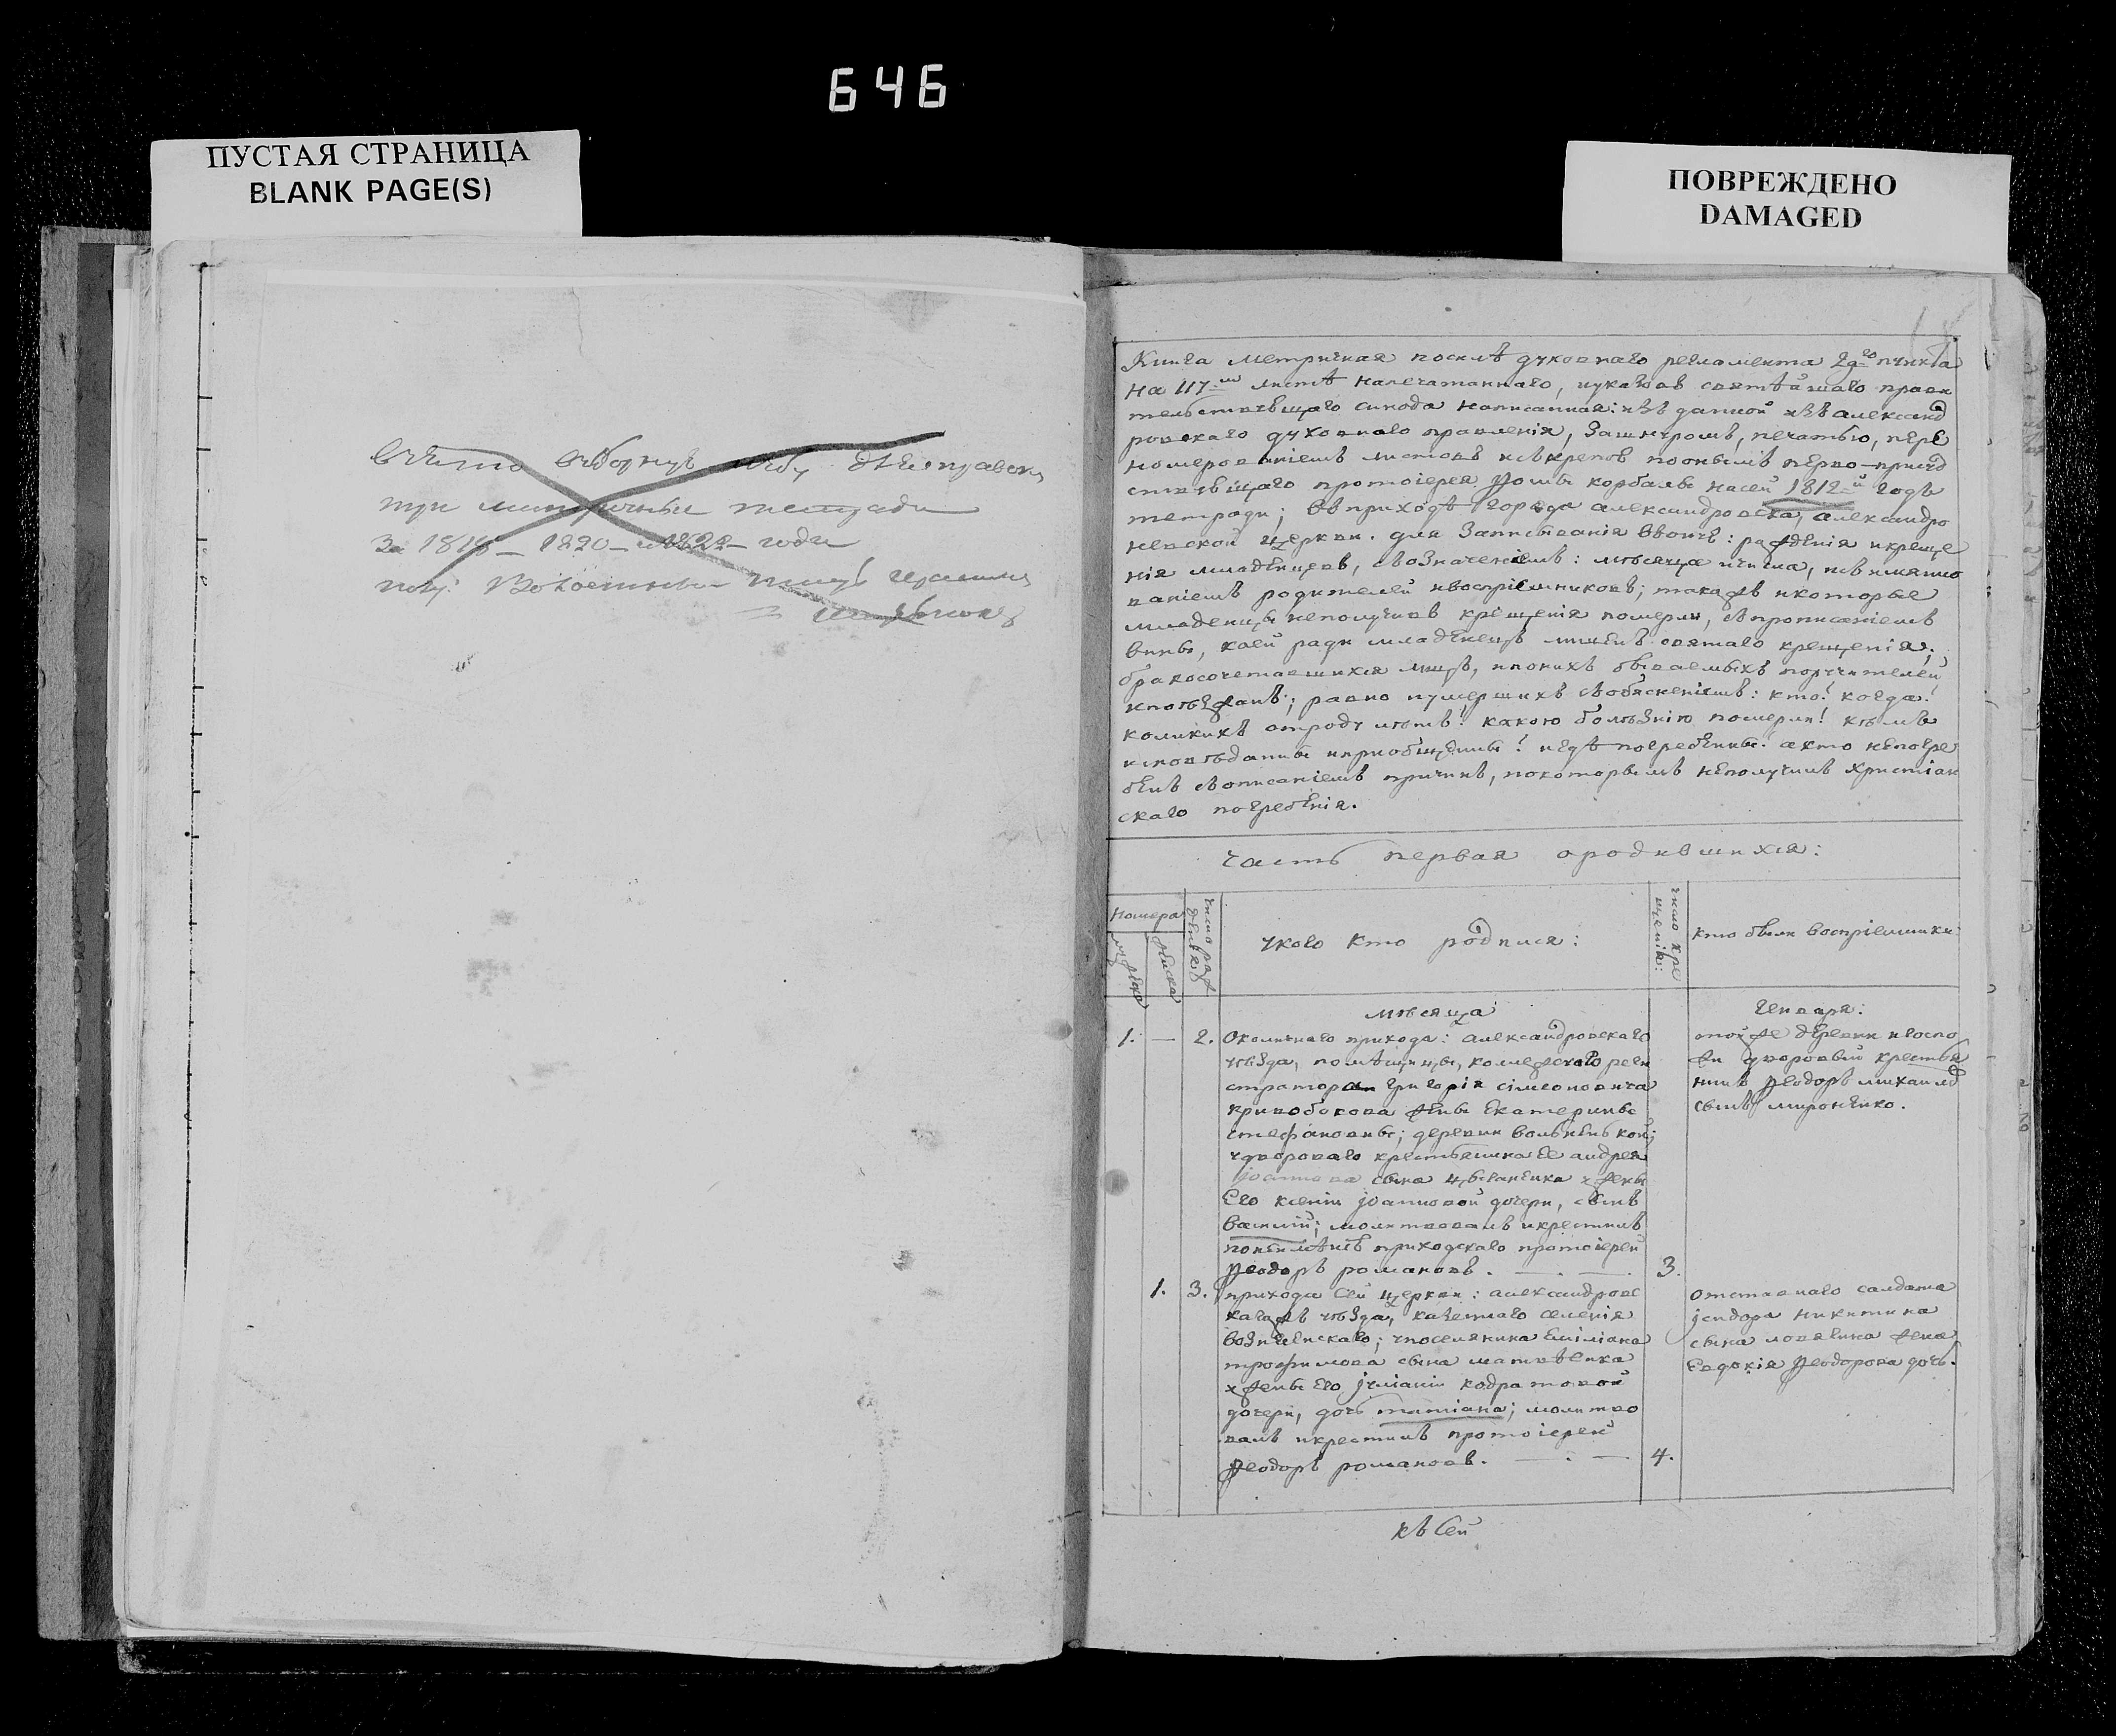 646
ПУСТАЯ СТРАНИЦА
BLANK PAGE(S)
ПОВРЕЖДЕНО
DAMAGED
три метричныя тетради
За 1818 – 1820 – 1822 – годы
Книга метричная посилѣ духовнаго регламента 29го пункта
на 117м листѣ напечатаннаго, иуказовъ святѣйшаго прави
тельствующаго синода написанная: изъ данной изъ александ
ровскаго духовнаго правленія, Зашнуромъ, печатью, пере
номерованіемъ листовъ искрепою пооныхъ перво-присуд
ствующаго протоіерея Ѳомы корбалы насей 1812й годъ
тетради; въприходѣ города александровска, александро
невской церкви. для Записыванія Ввонъ: рожденія икреще
нія младенцевъ, своЗначеніемъ: мѣсяца ичисла, исъимяно
ваніемъ родителей ивоспріемниковъ; такожъ икоторые
младенцы неполучивъ крещенія померли, съпрописаніемъ
вины, коей ради младенецъ лишенъ святаго крещенія;
бракосочетавшихся лицъ, ипонихъ бываемыхъ поручителей
ипоѣзжанъ; равно иумершихъ собясненіемъ: кто! когда!
коликихъ отроду лѣтъ! какою болѣЗнію померли! кѣмъ
исповѣданы ипріобщены! игдѣ погребены. акто непогре
бенъ свописаніемъ причинъ, покоторымъ неполучилъ христіан
скаго погребенія.
часть первая ородившихся:
Номера
мужеска
женска
число рож
денія
укого кто родился:
число кре
щенія:
кто были воспріемники
мѣсяца
Генваря:
1. — 2. Околичнаго прихода: александровскаго
уѣзда, помѣщицы, колежскаго реги
стратора Григорія сімеоновича
кривобокова жены Екатерины
стефановны; деревни вольненькой;
удвороваго крестьянина Ее андрея
іоаннова сына цыганенка ижены
Его ксеніи іоанновой дочери, сынъ
Василій; молитвовалъ икрестилъ
понеимѣнію приходскаго протоіерей
Ѳеодоръ романовъ. — . — . 3.
тойже деревни игоспо
жи дворовый крестья
нинъ Ѳеодоръ михаиловъ
сынъ мироненко.
1. 3. прихода Сей церкви: александровс
кагожъ уѣзда, казеннаго селенія
воЗнесенскаго; упоселянина Еміліана
трофимова сына матвѣенка
ижены Его іуліаніи кодратовой
дочери, дочь татіана; молитво
валъ икрестилъ протоіерей
Ѳеодоръ романовъ. — . — 4.
отставнаго салдата
ісидора никитина
сына ловягина жена
Евдокія Ѳеодорова дочь.
къ Сей